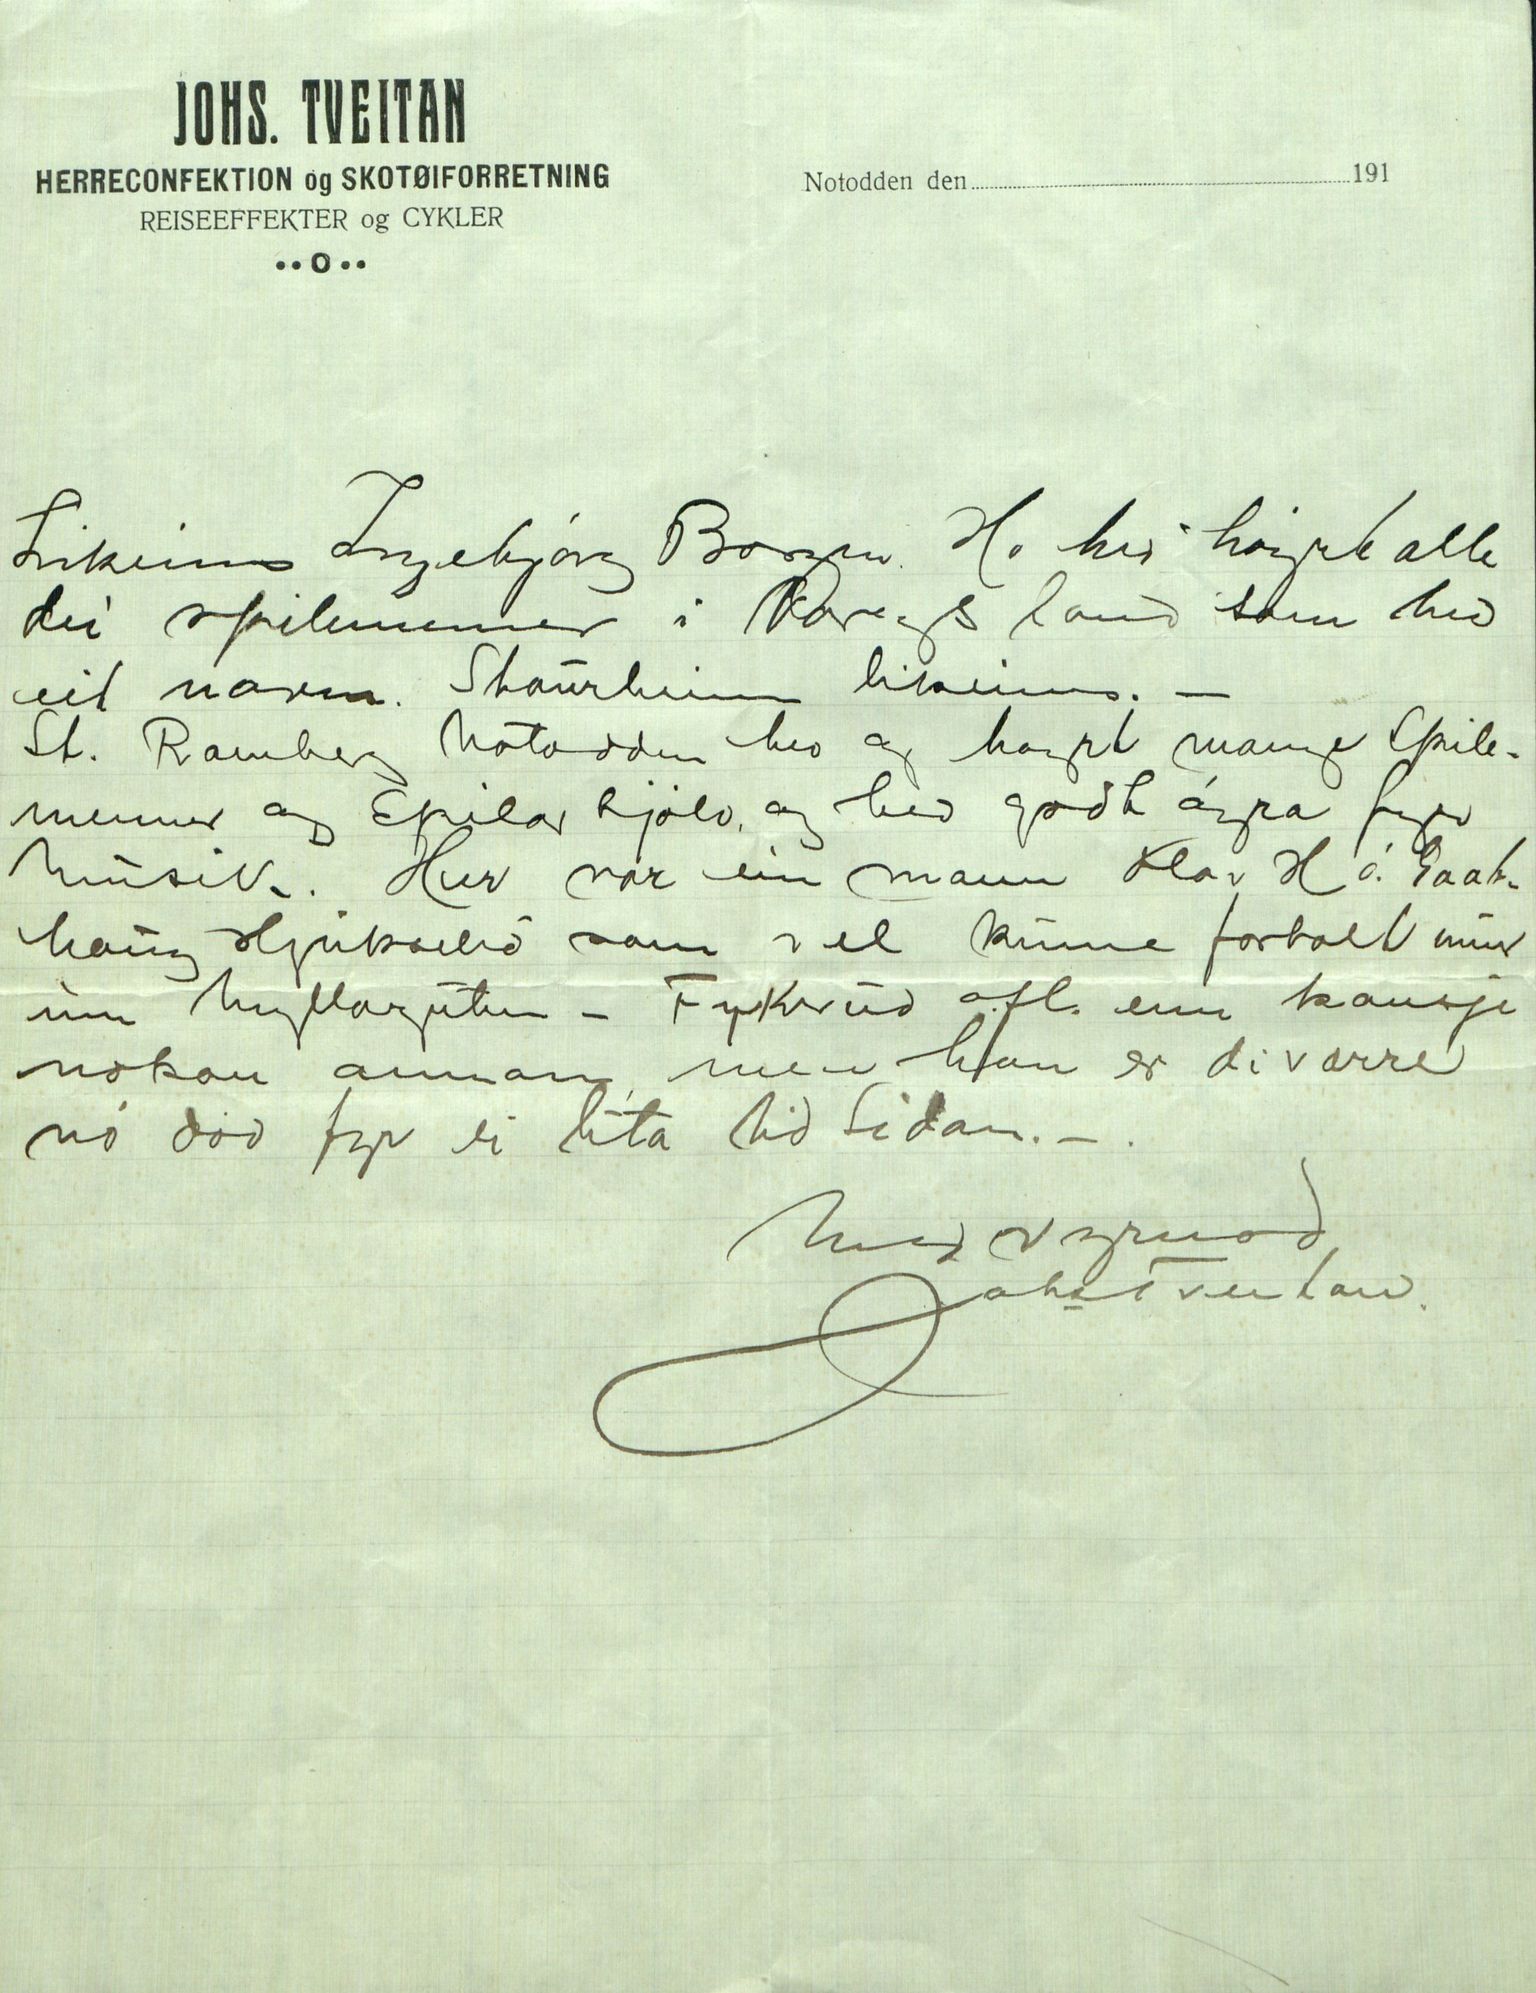 JOHS. TVEITAN
HERRECONFEKTION og SKOTØIFORRETNING
REISEEFFEKTER og CYKLER
Notodden den 191
Likeins Ingebjörg Borgen. Ho hev höyrt alle
dei spilemenner i Noregs land som hev
eit navn. Staurheim likeins. —
St. Ramberg Notodden hev og høyrt mange Spile-
menner og Spilar sjölv, og hev godt öyra fyre
Musik. Her var ein mann Olav H ó. Gaat-
haug Hjuksebö som vel kunne fortalt meir
um Myllarguten — Fykerud ofl. enn kansje
nokon annan, men han er diværre
nó död fyr ei lita tid Sidan. —.
Med vyrnad
Johs Tveitan.